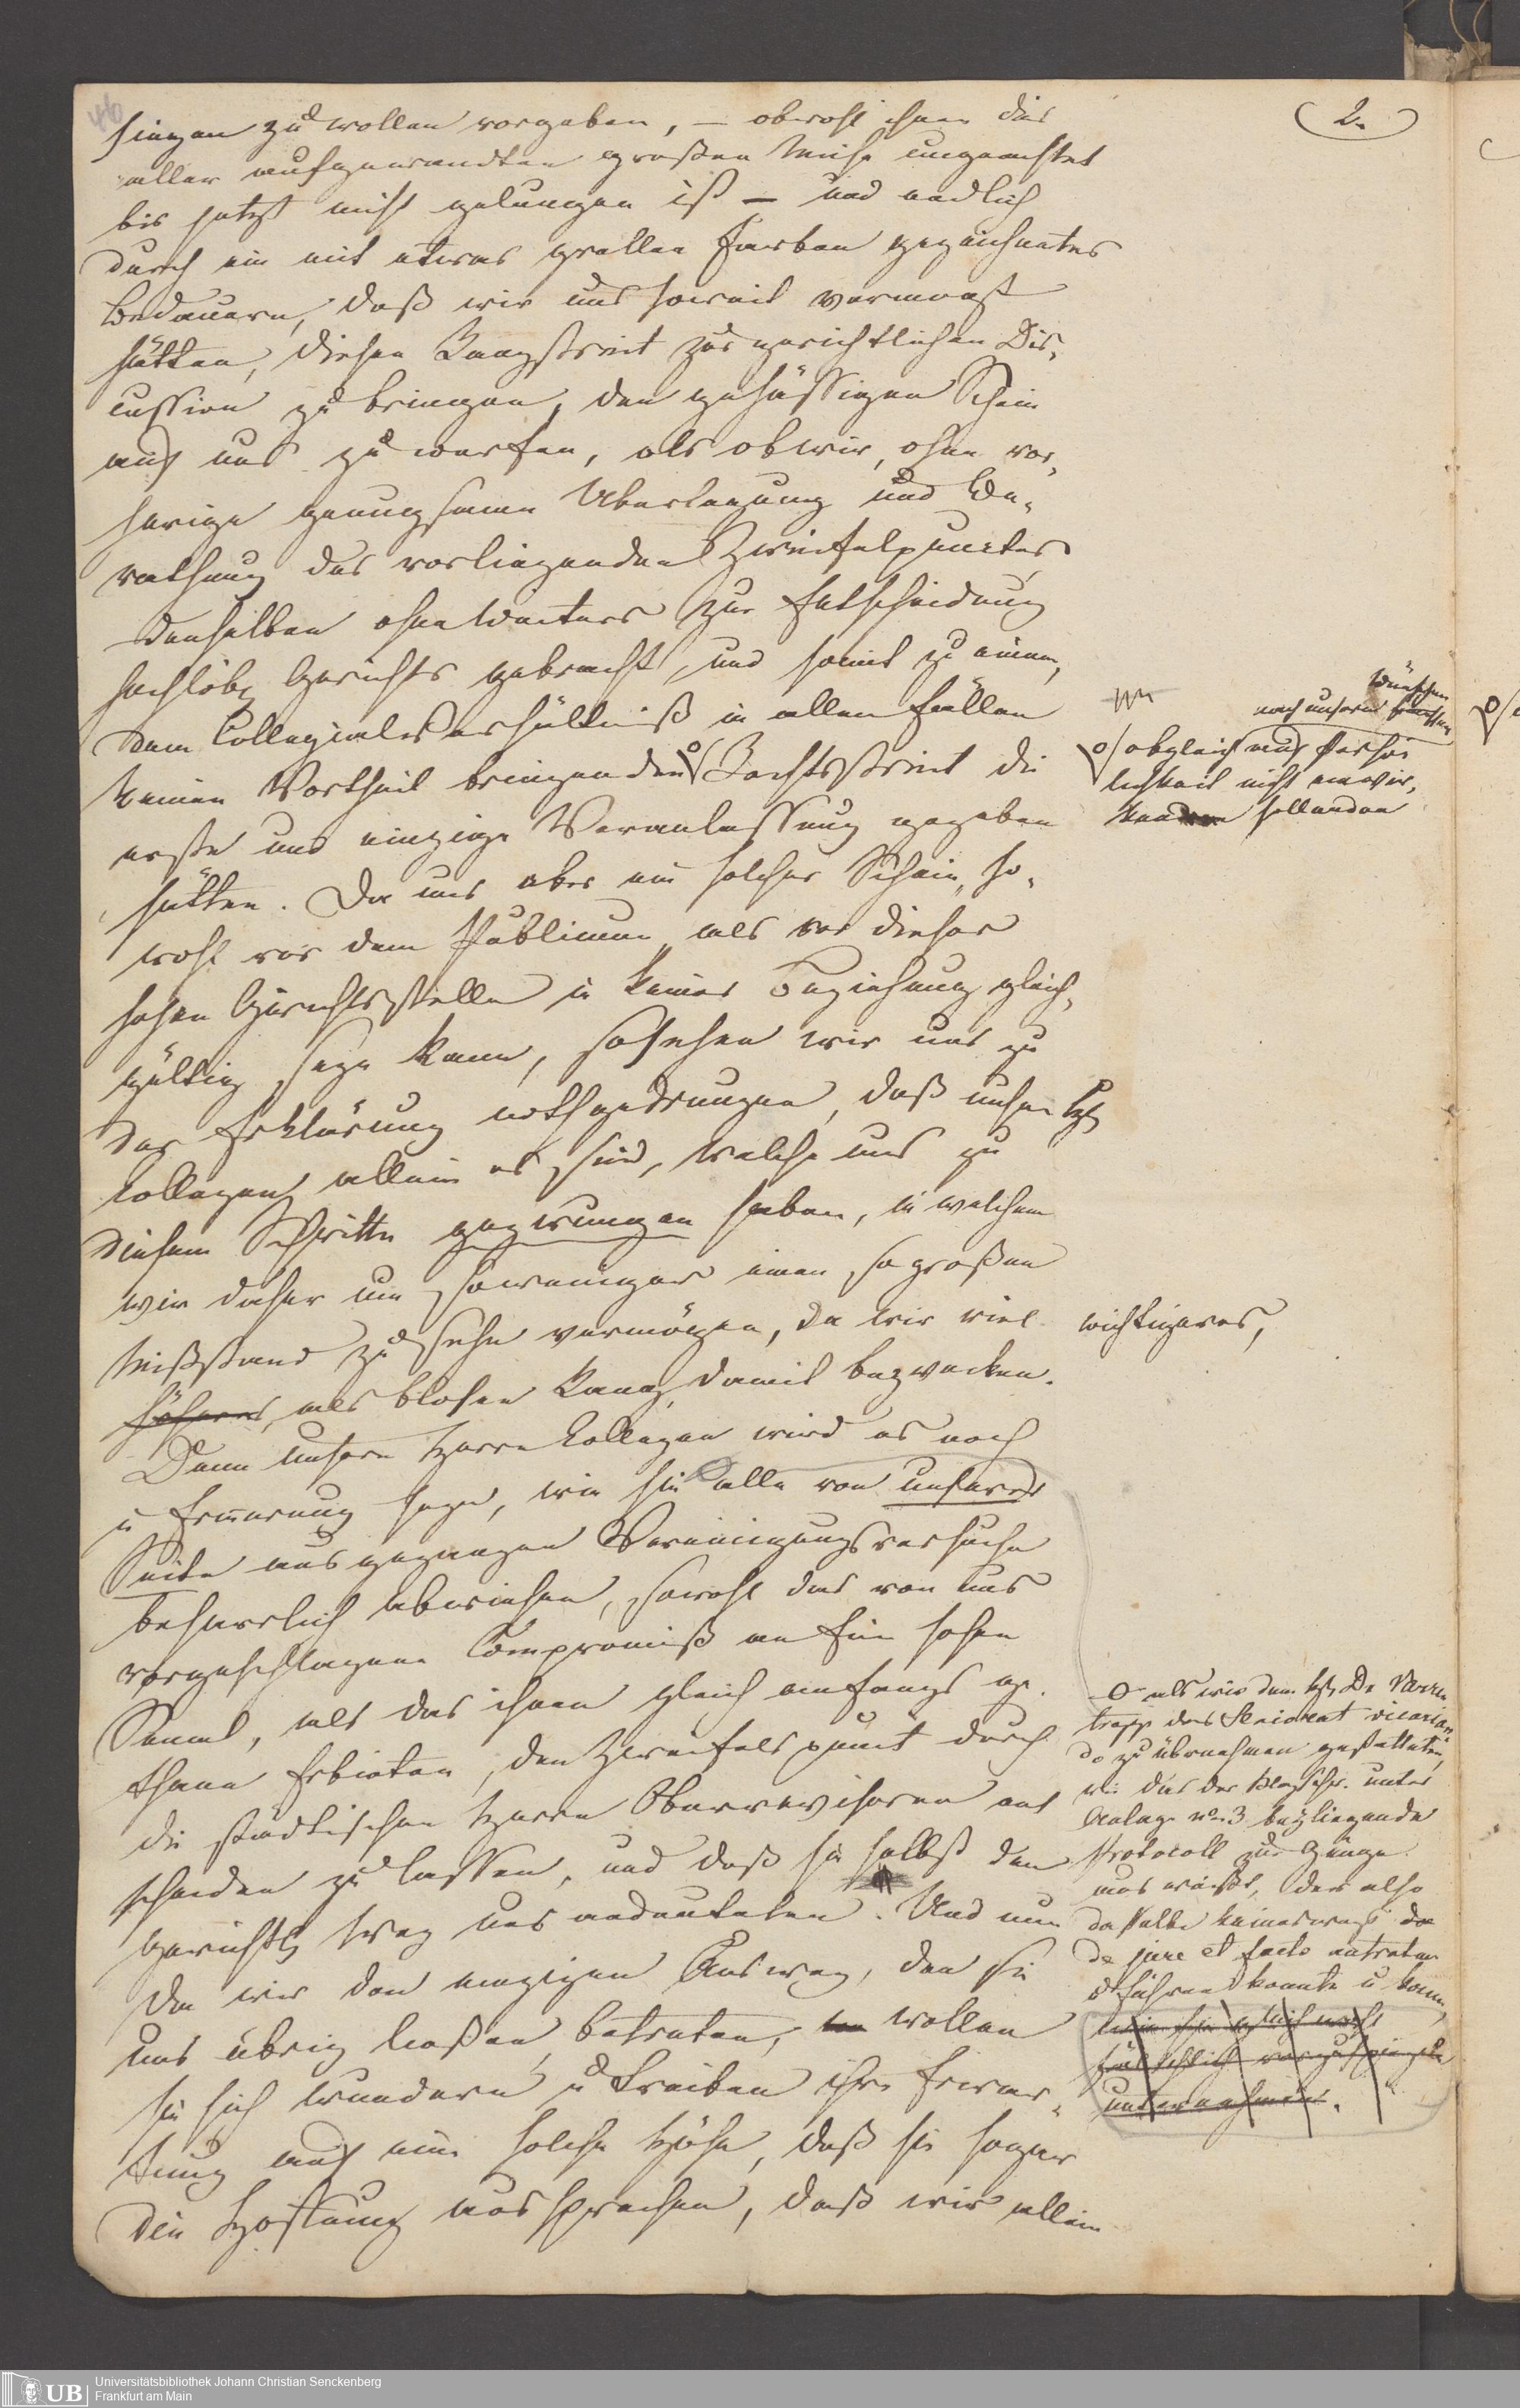 46
2.
singen zu wollen vorgeben, – obwohl ihnen dies
aller aufgewandten großen Mühe ungeachtet
bis jetzt nicht gelungen ist – und endlich
durch ein mit etwas grellen Farben gezeichnetes
Bedauern, daß wir uns soweit vermocht
hätten, diesen Rangstreit zur gerichtlichen Dis,
cussion zu bringen, den gehässigen Schein
auf uns zu werfen, als ob wir, ohne vor,
herige genugsame Überlegung und Be,
rathung des vorliegenden Zweifelpunctes
denselben ohne Weiteres zur Entscheidung
hochlöbl Gerichts gebracht, und somit zu einem,
dem Collegialverhältniß in allen Fällen
keinen Vortheil bringenden Rechtsstreit die
erste und einzige Veranlassung gegeben
hätten. Da uns aber ein solcher Schein, so,
wohl vor dem Publicum als vor dieser
hohen Gerichtsstelle in keiner Beziehung gleich,
gültig seyn kann, so sehen wir uns zu
der Erklärung nothgedrungen, daß unsere HH
Collegen allein es sind, welche uns zu
diesem Schritte gezwungen haben, in welchem
wir daher um soweniger einen so großen
Mißstand zu sehn vermögen, da wir viel
höheres, als blosen Rang damit bezwecken.
Denn unsern Herrn Collegen wird es noch
in Erinnerung seyn, wie sie alle von unserer
Seite ausgegangen Vereinigungsversuche
beharrlich abwiesen, sowohl das von uns
vorgeschlagene Compromiß an Ein hohen
Senat, als das ihnen gleich anfangs ge-
thane Erbieten, den Zweifelspunct durch
die städtischen Herrn Oberrevisoren ent
scheiden zu lassen, und daß sie selbst den
gerichtl Weg uns andeuteten. Und nun
da wir den einzigen Ausweg, den sie
uns übrig ließen, betreten, wollen
sie sich wundern u treiben ihre Erwar,
tung auf eine solche Höhe, daß sie sogar
die Hoffnung aussprechen, daß wir allein
nach unseren Wünschen
obgleich auf Persön
lichkeit nicht einwir,
ken sollenden
wichtigeres,
als wir dem HE Dr Varren
trapp das Seniorat vicarian
do zu übernehmen gestatteten,
wie dies der Klagschr. unter
Anlage No. 3 beyliegende
Protocoll zur Genüge
ausweißt, der also
dasselbe keineswegs
de jure et facto antreten
u führen konnte u kann,
wie sie gleichwohl
fälschlich vorzuspiegeln
unternehmen.
UB
Universitätsbibliothek Johann Christian Senckenberg
Frankfurt am Main